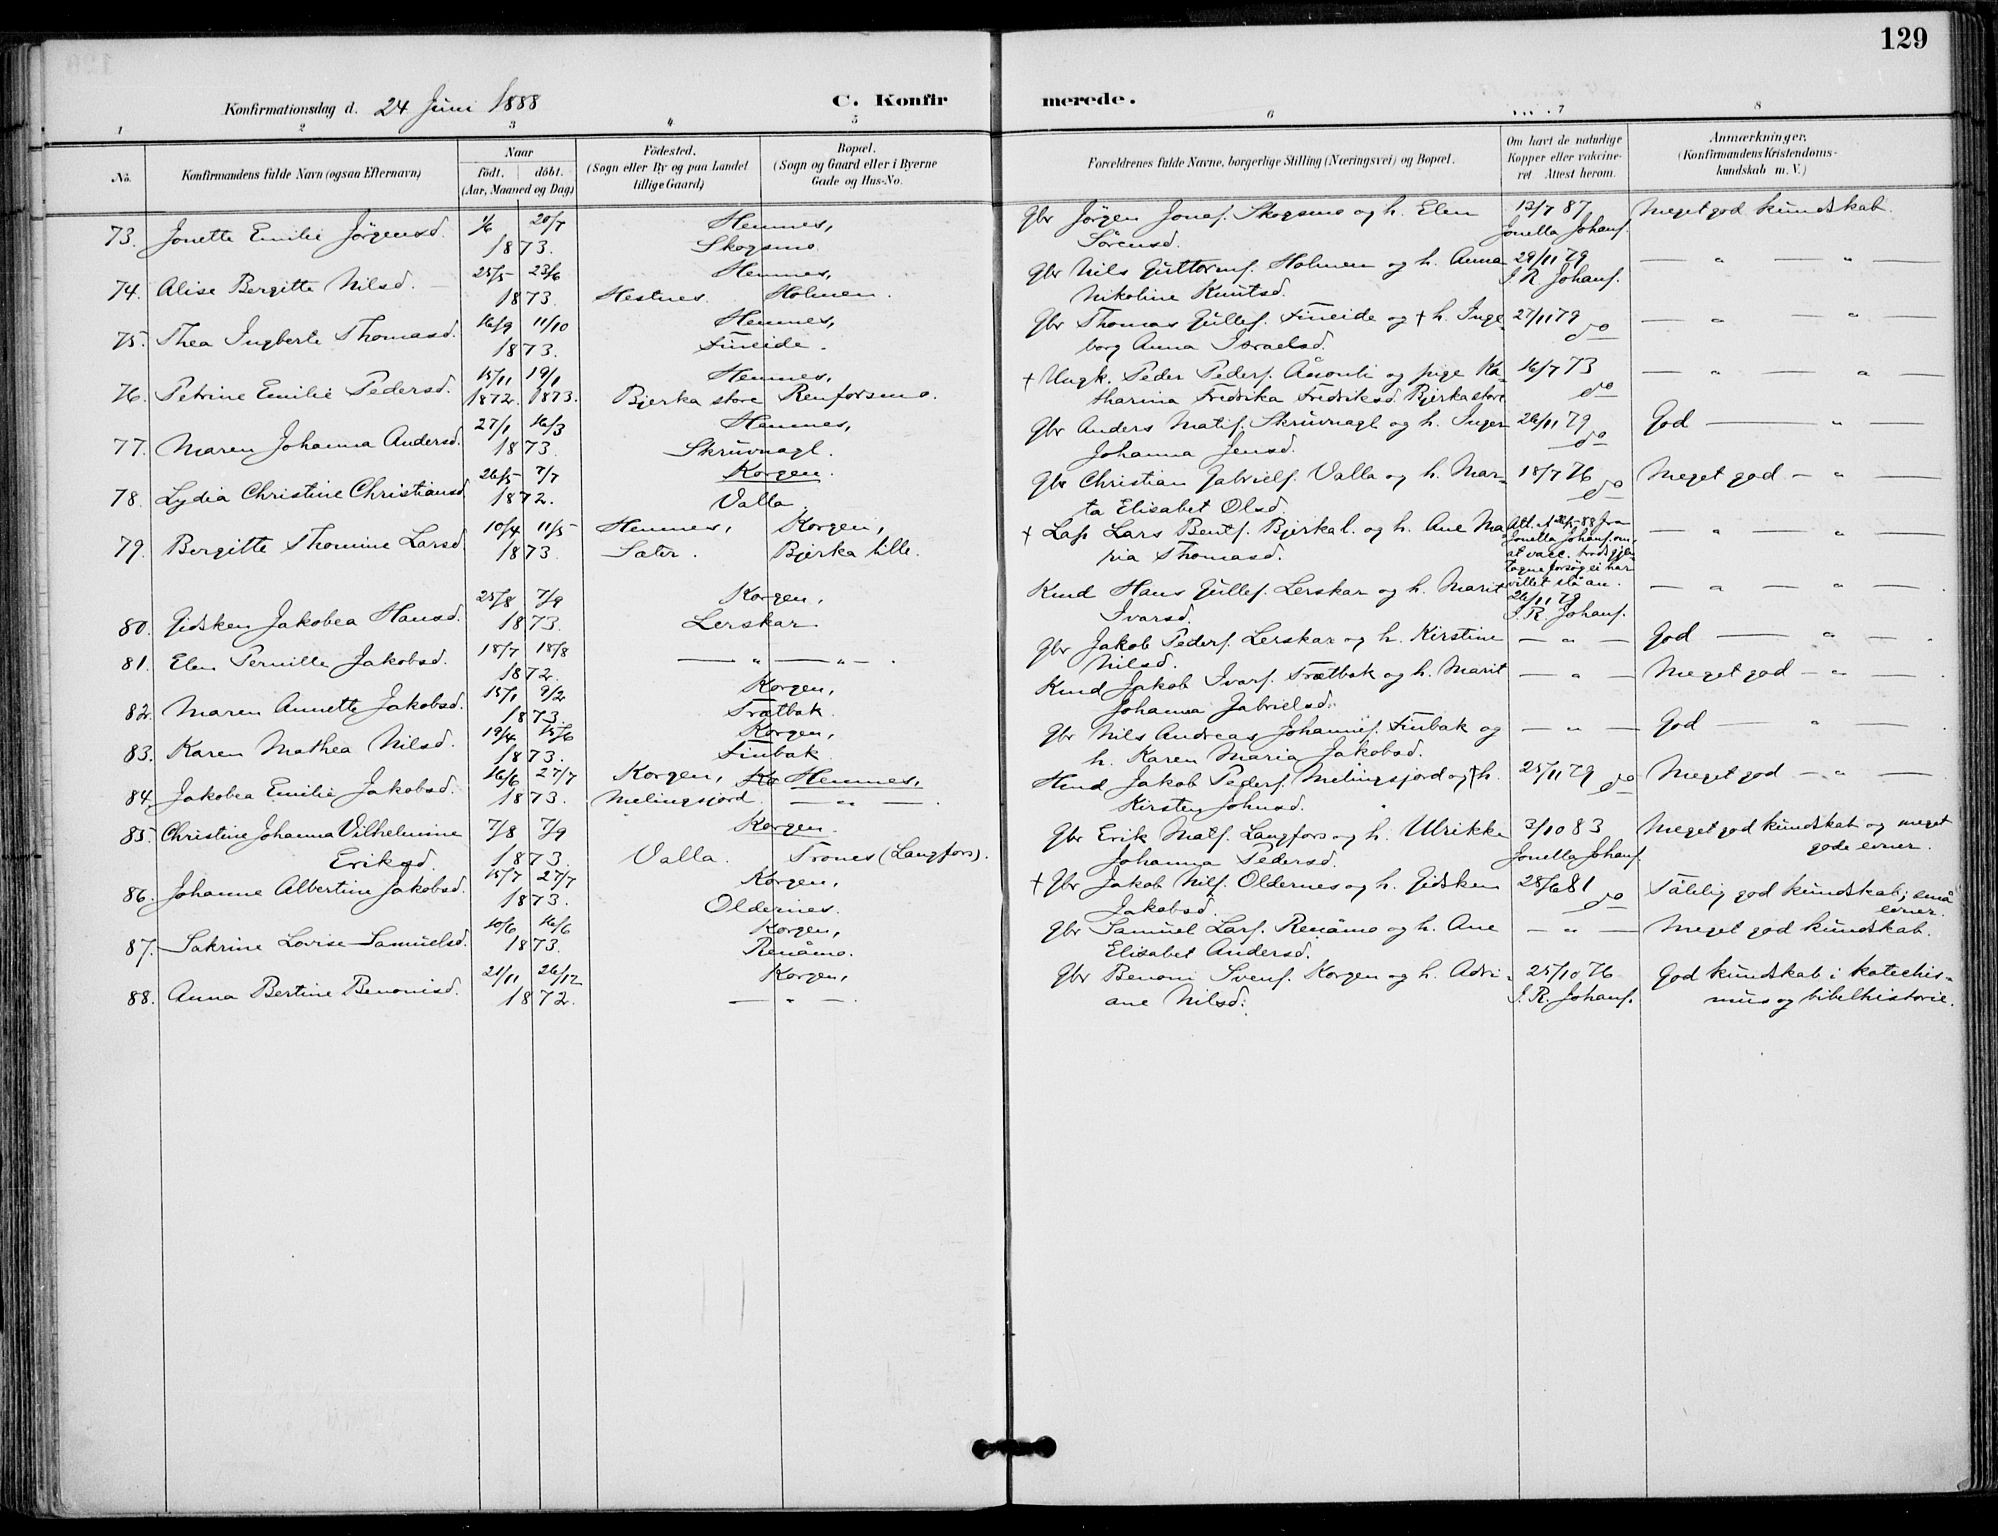 129
Konfirmationsdag d. 24 Juni 1888
C. Konfirmerede.
1 2 3 4 5 6 7 8
No.
Konfirmandens fulde Navn (ogsaa Efternavn)
Naar
födt. döbt.
(Aar, Maaned og Dag)
Födested.
(Sogn eller By og paa Landet
tillige Gaard)
Bopæl.
(Sogn og Gaard eller i Byerne
Gade og Hus-No.
Forældrenes fulde Navne, borgerlige Stilling (Næringsvei) og Bopæl.
Om havt de naturlige
Kopper eller vakcineret
Attest herom.
Anmærkninger.
(Konfirmandens Kristendoms-
kundskab m. V.)
73. Jonette Emilie Jörgensd. 1/6 20/7 Hemnes, Gbr Jörgen Jonas. Skogsmo og h. Elen 12/7 87 Meget god kundskab.
1873. Skogsmo. Sörensd. Jonetta Johans.
74. Alise Bergitte Nilsd. 25/5 23/6 Hemnes, Gbr Nils Guttorms. Holmen og h. Anna 29/11 79 — " — " —
1873. Hestnes. Holmen. Nikoline Knutsd. I. R. Johans.
75. Thea Ingberte Thomasd. 16/9 11/10 Hemnes, Gbr Thomas Gullef. Fineide og † h. Inge- 27/11 79 — " — " —
1873. Fineide. borg Anna Israelsd. do
76. Petrine Emilie Pedersd. 15/11 19/1 Hemnes, † Ungk. Peder Peders. og pige Ka- 16/7 73 — " — " —
1872. 1873. Bjerka store Renforsmo. tharina Fredrika Fredriksd. Bjerka store do
77. Maren Johanna Andersd. 27/1 16/3 Hemnes, Gbr Anders Mats. Skruvnagl og h. Inger 26/11 79 God — " —
1873. Skruvnagl. Johanna Jensd. do
78. Lydia Christine Christiansd. 26/5 7/7 Korgen. Gbr Christian Gabriels. Valla og h. Mar- 18/7 76 Meget god — " —
1872. Valla ta Elisabet Olsd. do
79. Bergitte Thomine Larsd. 10/4 11/5 Hemnes, Korgen, † Lars Bents. Bjerka l. og h. Ane Ma- Att. fra — " — " —
1873. Sæter. Bjerka lille. ria Thomasd. Jonetta Johans. om
at vacc. trods gjen-
tagne forsög ei har
villet slå an.
80. Gidsken Jakobea Hansd. 25/8 7/9 Korgen, Kmd Hans Gullef. Lerskar og h. Marit 26/11 79 — " — " —
1873. Lerskar Ivarsd. I. R. Johans.
81. Elen Pernille Jakobsd. 18/7 18/8 — " — " — Gbr Jakob Peders. Lerskar og h. Kirstine — " — God — " —
1872. Nilsd.
82. Maren Annette Jakobsd. 15/1 9/2 Korgen, Kmd Jakob Ivars. Trætbak og h. Marit — " — Meget god — " —
1873. Trætbak. Johanna Gabrielsd.
83. Karen Mathea Nilsd. 19/4 15/6 Korgen, Gbr Nils Andreas Johannes. Finbak og — " — God — " —
1873. Finbak h. Karen Maria Jakobsd.
84. Jakobea Emilie Jakobsd. 16/6 27/7 Korgen, Hemnes, Hmd Jakob Peders. Melingsjord og † h. 25/11 79 do Meget god — " —
1873. Melingsjord. — " — Kirsten Johnsd.
85. Christine Johanna Vilhelmine 7/8 7/9 Korgen. Gbr Erik Mats. Langfors og h. Ulrikke 3/10 83 Meget god kundskab og meget
Eriksd. 1873. Valla. Trones (Langfors). Johanna Pedersd. Jonetta Johans. gode evner.
86. Johanne Albertine Jakobsd. 15/7 27/7 Korgen, † Gbr Jakob Nils. Oldernes og h. Gidsken 28/6 81 Tålelig god kundskab; små
1873. Oldernes. Jakobsd. do evner.
87. Sakrine Lovise Samuelsd. 10/6 16/6 Korgen, Gbr Samuel Lars. Renåmo og h. Ane — " — Meget god kundskab.
1873. Renåmo. Elisabet Andersd.
88. Anna Bertine Benonisd. 21/11 26/12 Korgen, Gbr Benoni Svens. Korgen og h. Adri- 25/10 76 God kundskab i katechis-
1872. — " — ane Nilsd. I. R. Johans. mus og bibelhistorie.